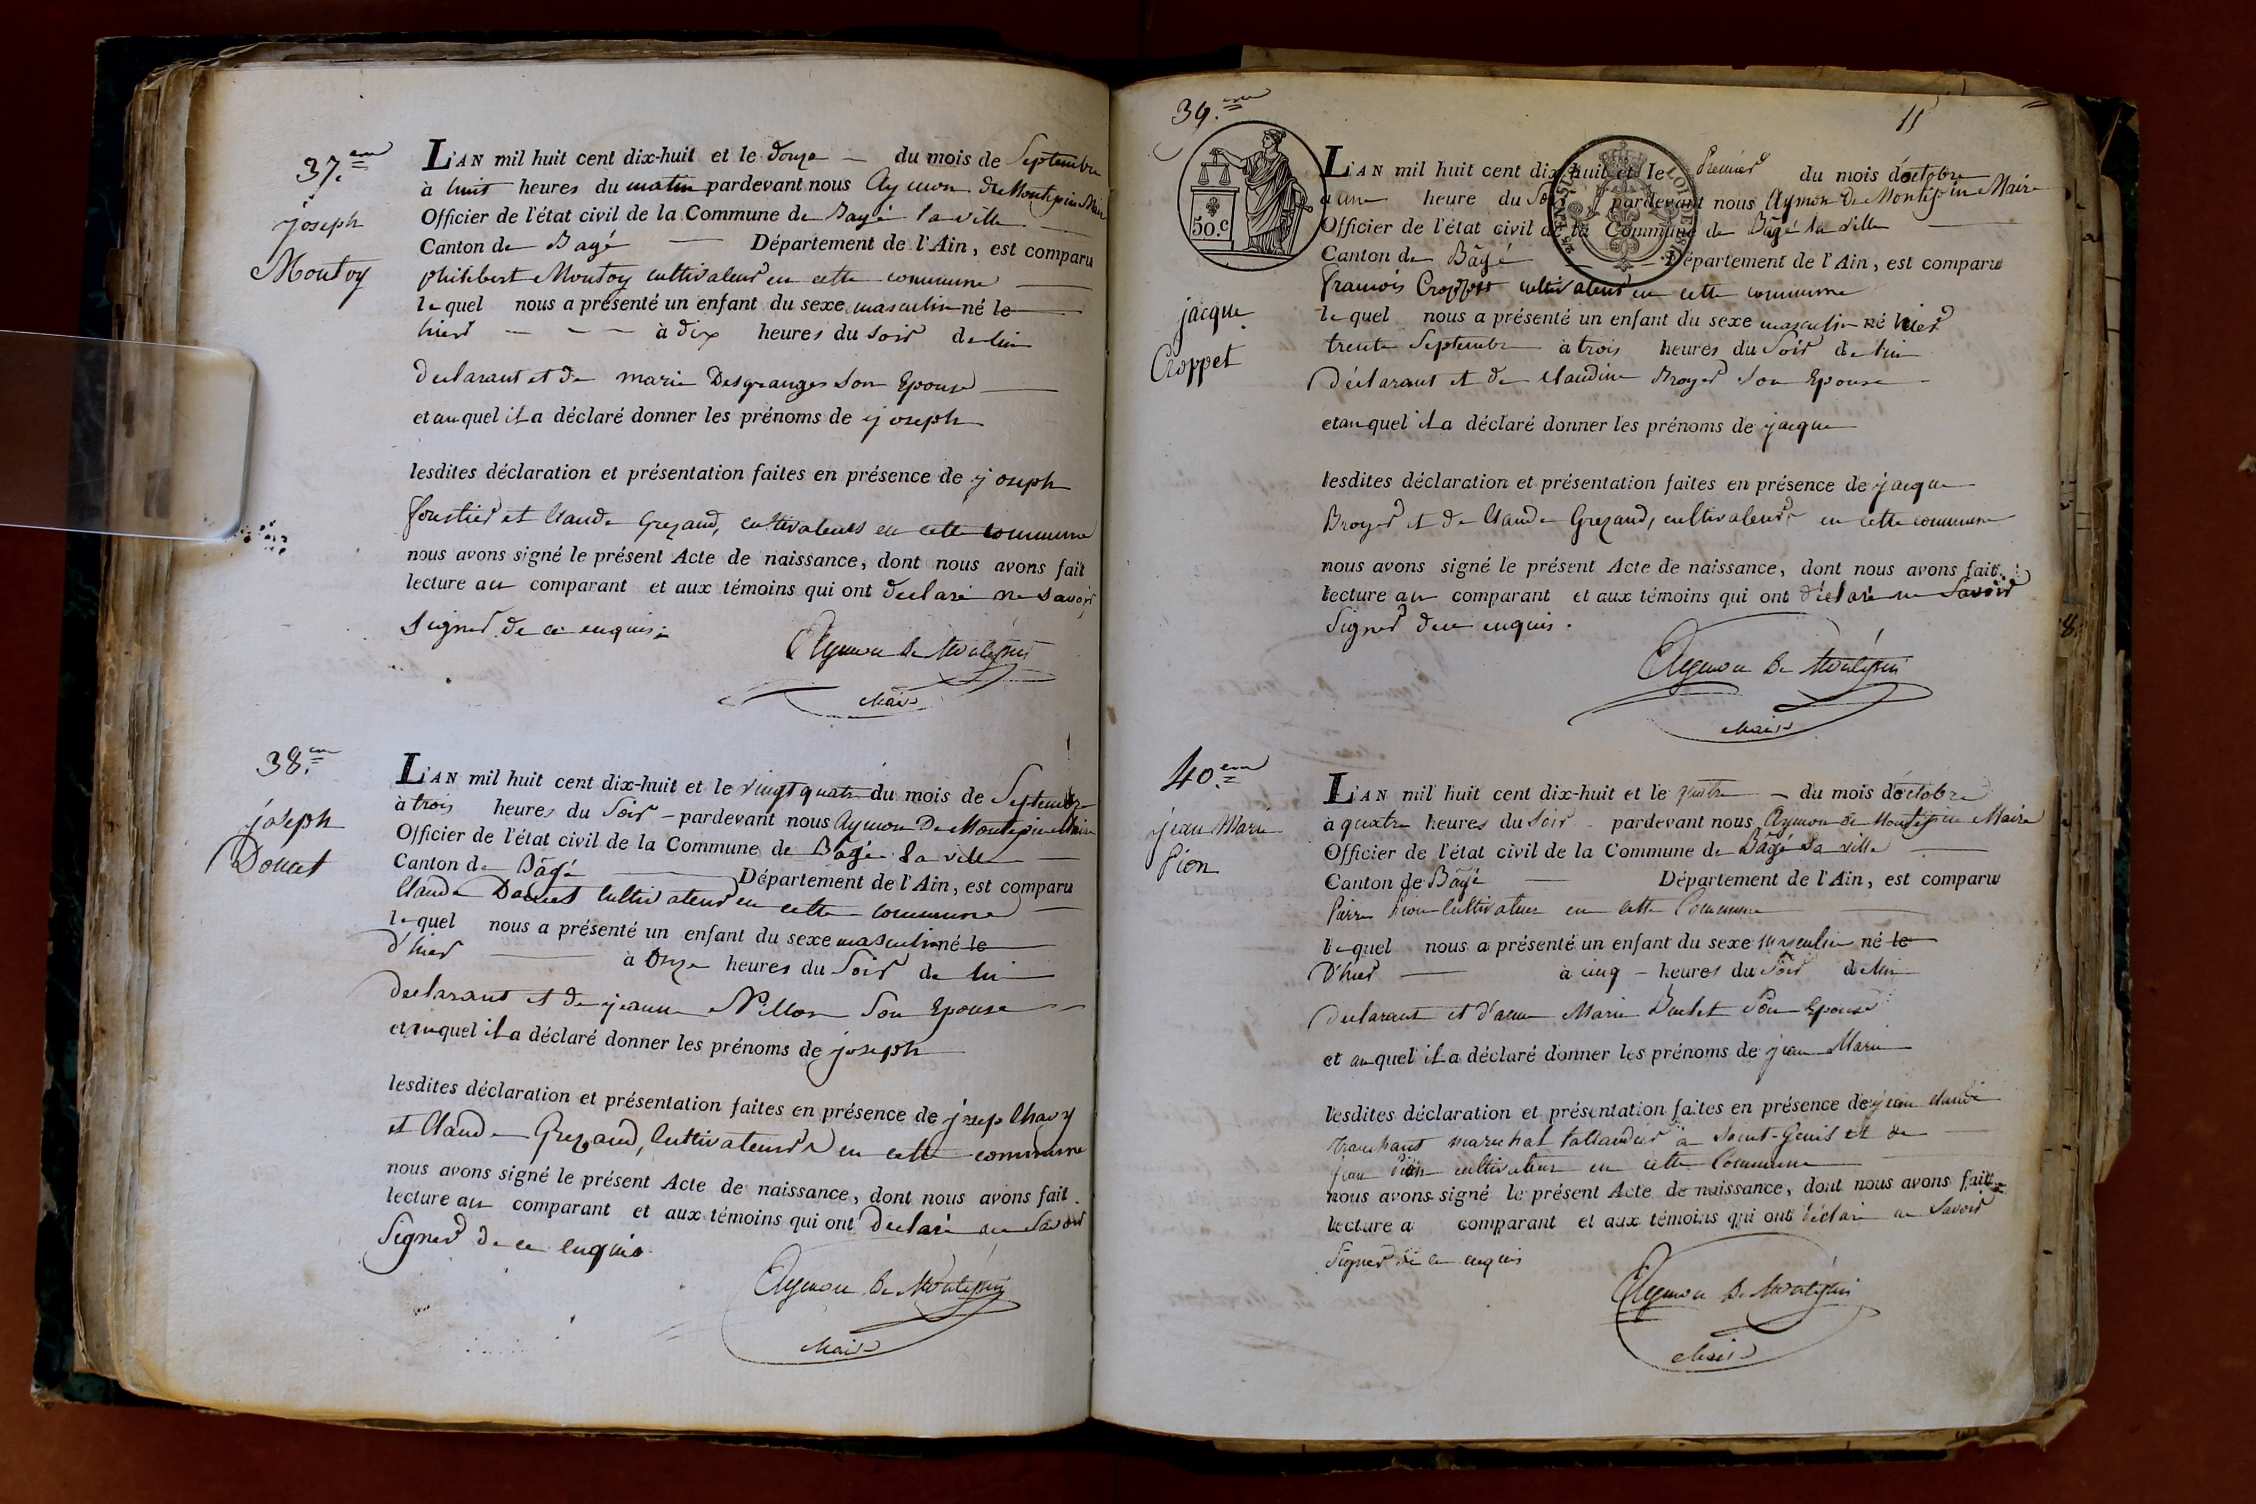 37.em
joseph
Moutoy
L'AN mil huit cent dix-huit et le douze du mois de Septembre
à huit heures du matin pardevant nous Aymon de Montepin Maire
Officier de l'état civil de la Commune de Bagé la ville
Canton de Bagé Département de l'Ain, est comparu
philibert Moutoy cultivateur en cette commune
lequel nous a présenté un enfant du sexe masculin né le
hier à dix heures du Soir de lui
declarant et de marie Desgranges Son Epouse
et auquel il a déclaré donner les prénoms de joseph
lesdites déclaration et présentation faites en présence de joseph
et Claude Grezaud, cultivateurs en cette commune
nous avons signé le présent Acte de naissance, dont nous avons fait
lecture au comparant et aux témoins qui ont declaré ne Savoir
Signer de ce enquis
Aymon De Montépin
Maire
38.em
joseph
Doucet
L'AN mil huit cent dix-huit et le vingt quatre du mois de Septembre
à trois heures du Soir pardevant nous Aymon De Montepin Maire
Officier de l'état civil de la Commune de Bâgé la ville
Canton de Bâgé Département de l'Ain, est comparu
Claude Doucet Cultivateur en cette commune
lequel nous a présenté un enfant du sexe masculin né le
d'hier à Onze heures du Soir de lui
declarant et de jeanne Son Epouse
et auquel il a déclaré donner les prénoms de joseph
lesdites déclaration et présentation faites en présence de Chavy
et Claude Grezaud, Cultivateurs en cette commune
nous avons signé le présent Acte de naissance, dont nous avons fait
lecture au comparant et aux témoins qui ont declaré ne Savoir
Signer de ce enquis
Aymon De Montépin
Maire
39.em
11
50.c
jacque
Croppet
L'AN mil huit cent dix-huit et le Premier du mois d'octobre
à une heure du Soir pardevant nous Aymon De Montepin Maire
Officier de l'état civil de la Commune de Bâgé la ville
Canton de Bâgé Département de l'Ain, est comparu
françois Croppet cultivateur en cette commune
lequel nous a présenté un enfant du sexe masculin né hier
trente Septembre à trois heures du Soir de lui
déclarant et de claudine Broyer Son Epouse
et auquel il a déclaré donner les prénoms de jacque
lesdites déclaration et présentation faites en présence de jacque
Broyer et de Claude Grezaud, cultivateurs en cette commune
nous avons signé le présent Acte de naissance, dont nous avons fait
lecture au comparant et aux témoins qui ont déclaré ne Savoir
Signer de ce enquis.
Aymon De Montépin
Maire
40.em
jean Marie
Pion
L'AN mil huit cent dix-huit et le quatre du mois d'octobre
à quatre heures du Soir pardevant nous Aymon de Montepin Maire
Officier de l'état civil de la Commune de Bâgé la ville
Canton de Bâgé Département de l'Ain, est comparu
Pierre Pion Cultivateur en cette Commune
lequel nous a présenté un enfant du sexe masculin né le
D'hier à cinq heures du Soir de lui
declarant et d'anne Marie Son Epouse
et auquel il a déclaré donner les prénoms de jean Marie
lesdites déclaration et présentation faites en présence de jean claude
marechal taillandier à Saint-Genis et de
jean Pion cultivateur en cette Commune
nous avons signé le présent Acte de naissance, dont nous avons fait
lecture a comparant et aux témoins qui ont déclaré ne Savoir
Signer de ce enquis
Aymon De Montépin
Maire